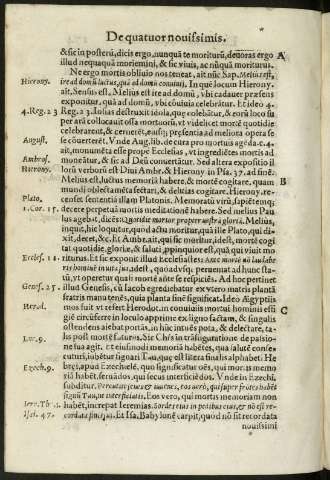 De quatuor nouissimis.
& sic in posterū, dicis ergo, nunquā te moriturū, deuoras ergo A
illud nequaquā moriemini, & sic viuis, ac nūquā moriturus.
Ne ergo mortis obliuio nos teneat, ait nūc Sap. Melius est,
Hierony. ire ad domū luctus, quā ad domū conuiuij. In quē locum Hierony.
ait, Sensus est, Melius est ire ad domū, vbi cadauer præsens
exponitur, quā ad domū, vbi cōuiuia celebrātur. Et ideo 4.
4. Reg. 23 Reg. 23. Iosias destruxit idola, quæ colebātur, & eorū loco su
per arā collocauit ossa mortuorū, vt videlicet morte quotidie
celebrarent, & cerneret, eáusq; præsentia ad meliora opera se
August. se cōuerterēt. Vnde Aug. lib. de cura pro mortuis agēda. c. 4.
ait, monumēta esse prope Ecclesias, vt ingrediētes mortis ad
Ambros. moneātur, & sic ad Deū conuertātur. Sed altera expositio il
Hierony. lorū verborū est Diui Ambr. & Hierony in Psa. 37. ad finē.
Melius est, luctus memoriā habere, & morté cogitare, quam B
mundi oblectamēta sectari, & delitias cogitare. Hierony. re-
Plato, censet sententiā illam Platonis. Memoratū virū, sapiētemq;
1. Cor. 15. decere perpetuā mortis meditationē habere. Sed melius Pau
lus agebat, dicēs: Quotidie morior propter vestrā gloriā. Melius,
inquit, hic loquitur, quod actu moritur, quā ille Plato, qui di-
xit, decet, &c. hi Ambr. ait, qui sic moritur, idest, morte cogi
tat quotidie, gloriæ, & saluti, pinquior est, quā qui viuit mo
Eccles. 11. riturus. Et sic exponit illud Ecclesiastes:
adest, quod adhuc perueniat ad hunc sta-
tū, vt operetur quasi mortē ante se respiciēs. Ad hoc pertinet
Genes. 25. illud Genesis, cū Iacob egrediebatur ex vtero matris plantā
fratris manu tenēs, quia planta finē significat. Ideo Ægyptiis
Herod. mos fuit vt refert Herodor. in conuiuiis mortui hominis effi C
giē circūferre in loculo apprime ex ligno factam, & singulis
ostendens aiebat potās, in hūc intuēs pota, & delectare, ta-
Luc. 9. lis post mortē futurus. Sic Chrs in trāsfiguratione de passio-
ne sua agit. Et eiusmodi memoriā habētes, qua salutē conse-
cuturi, iubētur signari Tau, quę est litera finalis alphabeti He
Ezech. 9. brei, apud Ezechielē, quo significatur oēs, qui moris memo
riā habēt, seruādos, qui secus interficiēdos. Vnde in Ezechi.
subditur. Percutite cunctos, eos verò, qui super frontes habēt
signū Tau, ne interficiatis. Eos vero, qui mortis memoriam non
Iere. Th. 1. habēt, increpat Ieremias. Sordes eius in pedibus eius, & nō est re-
Isai. 47. cordata finis sui. Et Isa. Babylonē carpit, quod nō sit recordata
nouissimi